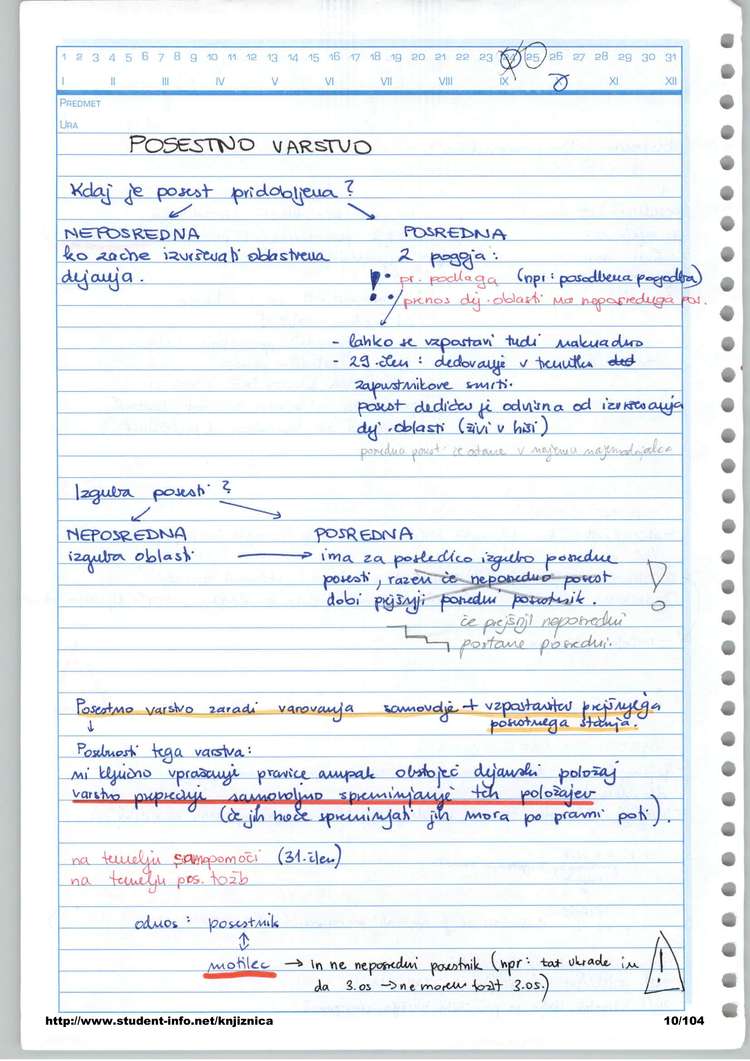 1 2 3 4 5 6 7 8 9 10 11 12 13 14 15 16 17 18 19 20 21 22 23 24 25 26 27 28 29 30 31
I II III IV V VI VII VIII IX X XI XII
PREDMET
URA
POSESTNO VARSTVO
Kdaj je posest pridobljena?
NEPOSREDNA POSREDNA
ko začne izvrševati oblastvena 2 pogoja:
dejanja. ! • pr. podlaga (npr: posodbena pogodba)
• prenos dej. oblasti na neposrednega pos.
- lahko se vzpostavi tudi naknadno
- 29. člen: dedovanje v trenutku ded
zapustnikove smrti.
posest dedičev je odvisna od izvrševanja
dej. oblasti (živi v hiši)
posredna posest če ostane v najemu najemodajalca
Izguba posesti?
NEPOSREDNA POSREDNA
izguba oblasti → ima za posledico izgubo posredne
posesti, razen če neposredno posest
dobi prejšnji posredni posestnik. !
če prejšnji neposredni
postane posredni.
Posestno varstvo zaradi varovanja samovolje + vzpostavitev prejšnjega
posestnega stanja.
Posebnosti tega varstva:
ni ključno vprašanje pravice ampak obstoječ dejanski položaj
varstvo prepreduje samovoljno spreminjanje teh položajev
(če jih hoče spreminjati jih mora po pravni poti).
na temelju samopomoči (31. člen)
na temelju pos. tožb
odnos: posestnik
↕
motilec → in ne neposredni posestnik (npr: tat ukrade in
da 3.os → ne morem tožit 3.os.) !
http://www.student-info.net/knjiznica 10/104